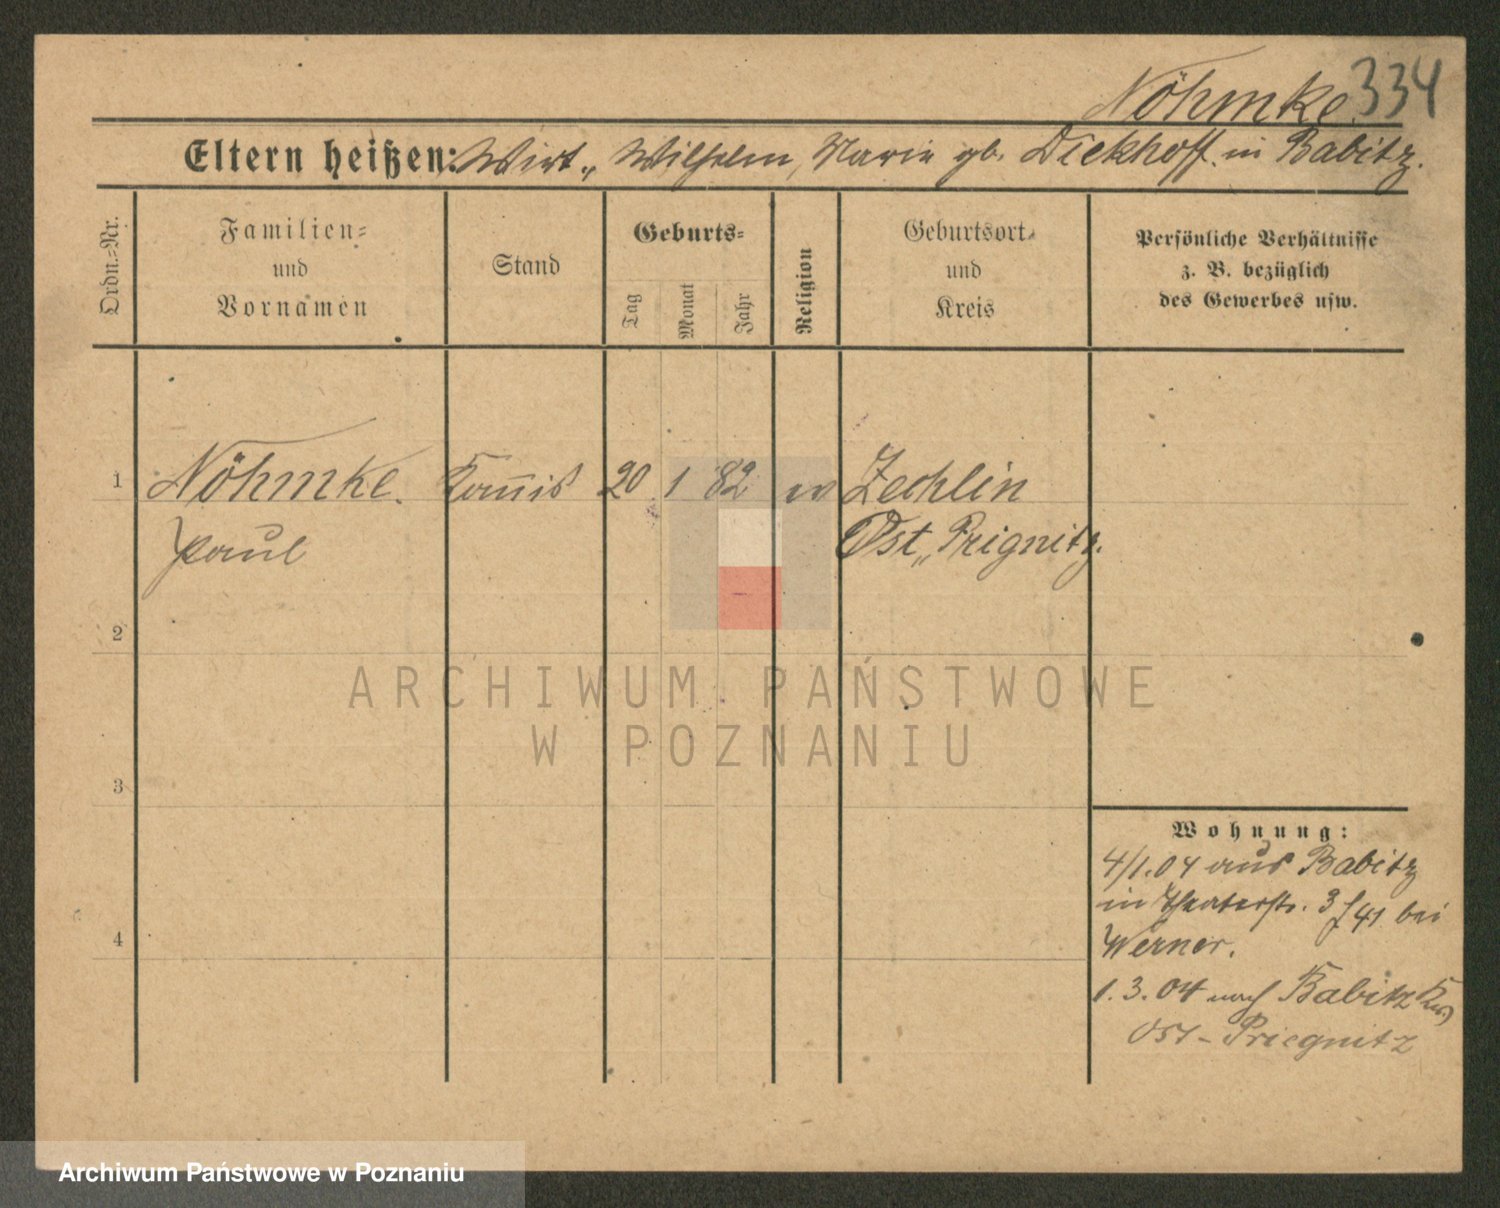 Nöhmke. 334
Eltern heißen: Wirt „ Wilhelm, Marie gb. Dickhoff in Babitz.
Ordn.-Nr.
Familien-
und
Vornamen
Stand
Geburts-
Tag
Monat
Jahr
Religion
Geburtsort
und
Kreis
Persönliche Verhältnisse
z. B. bezüglich
des Gewerbes usw.
1 Nöhmke. Kom̄is 20 1 82 ev Zechlin
Paul Ost„ Prignitz.
2
3
4
Wohnung:
4/1.04 aus Babitz
in Theaterstr. 3 f 41 bei
Werner.
1. 3. 04 nach Babitz
Ost-Priegnitz
ARCHIWUM PAŃSTWOWE
W POZNANIU
Archiwum Państwowe w Poznaniu